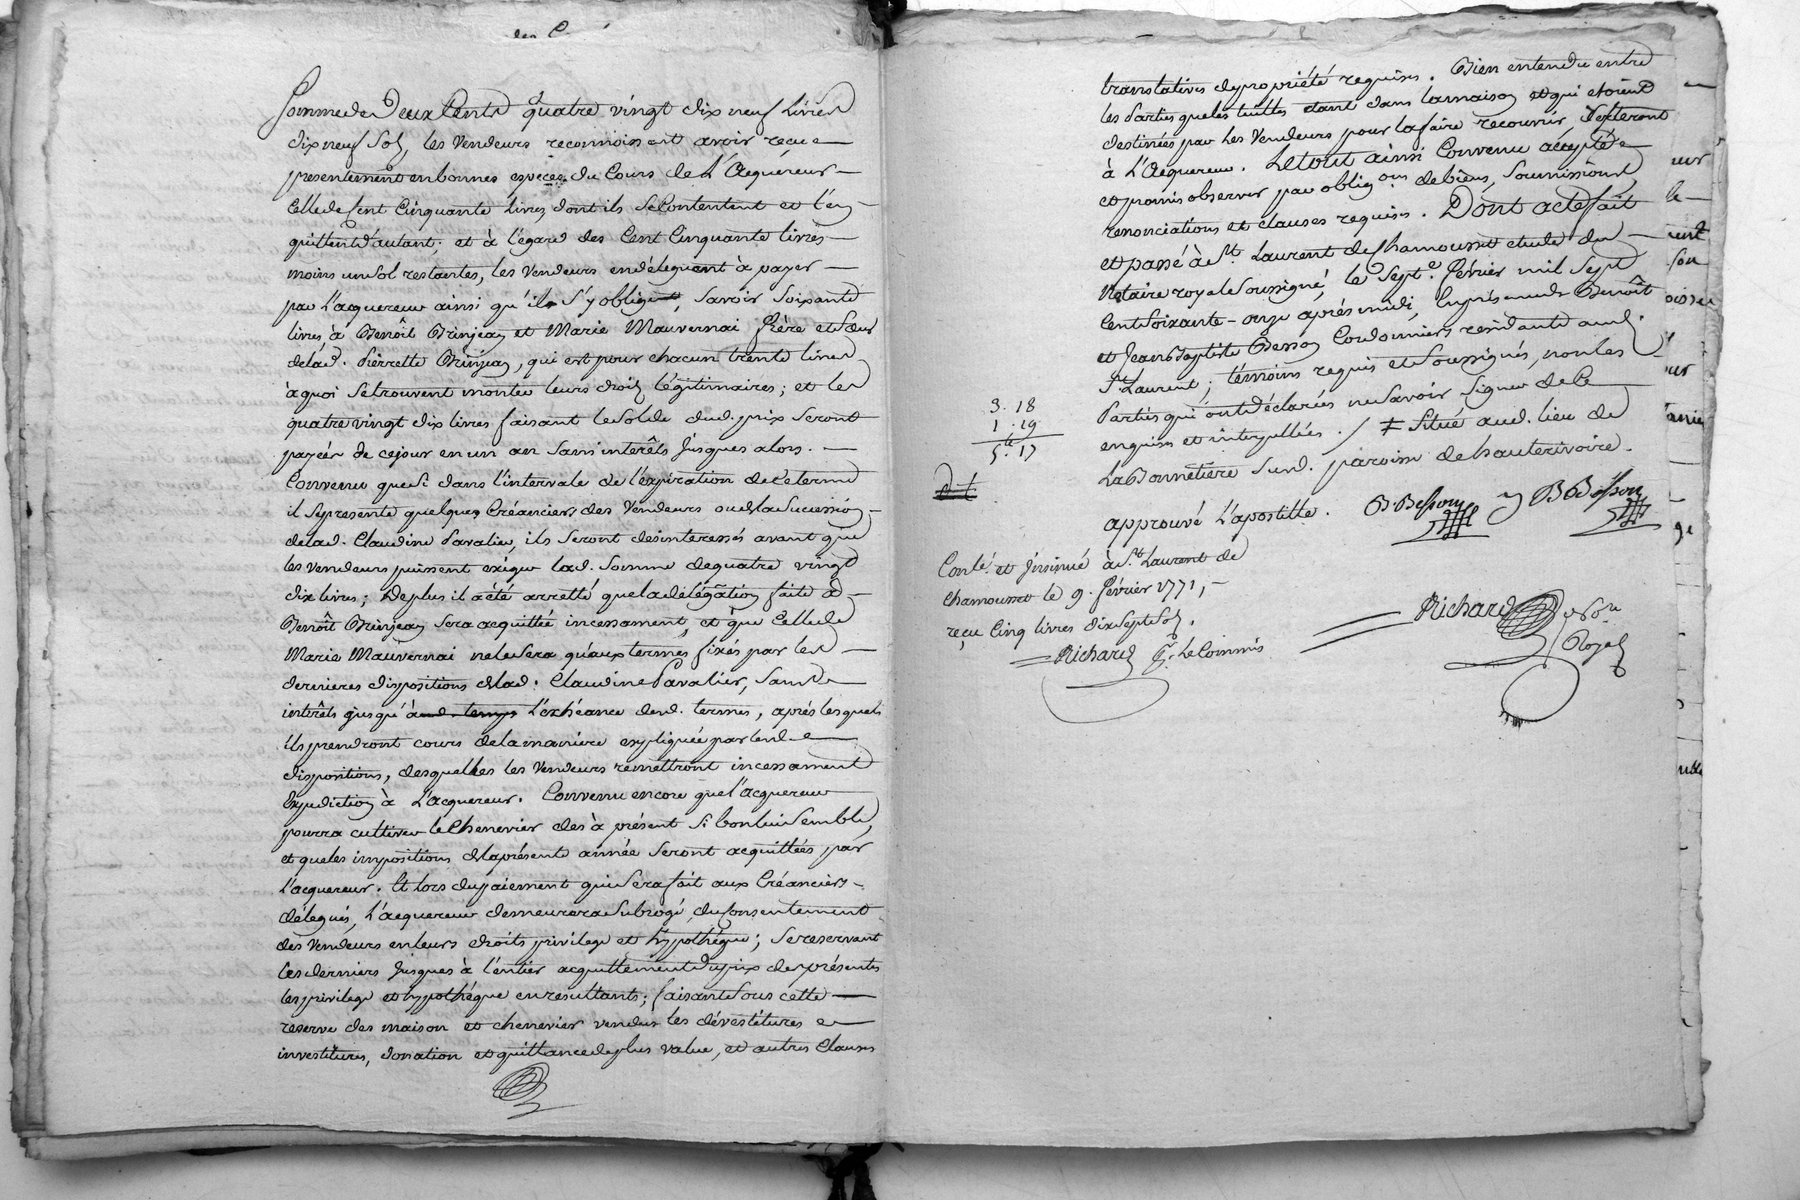 Somme de Deux Cents quatre vingt dix neuf livres
dix neuf sols, les Vendeurs reconnoissent avoir reçue
presentement en bonnes espèces du Cours de L'Acquereur
Celle de Cent Cinquante livres, dont ils se Contentent et l'en
quittent d'autant; et à l'égard des Cent Cinquante livres
moins un sol restantes, les Vendeurs en délequent à payer
par L'acquereur ainsi qu'il s'y oblige, savoir soixante
livres à Benoît Brinjean et Marie Mauvernai frère et sœur
de lad. Pierrette Brinjean, qui est pour chacun trente livres
à quoi se trouvent montée leurs droits légitimaires; et les
quatre vingt dix livres faisant le solde dud. prix seront
payées de ce jour en un an sans intérêts jusques alors.
Convenu que si dans l'intervale de l'expiration de ce terme
il se presente quelques Créanciers des Vendeurs ou de la succession
de lad. Claudine Pavalier, ils seront desinteressés avant que
les Vendeurs puissent exiger lad. somme de quatre vingt
dix livres; De plus il a été arretté que la délégation faite à
Benoît Brinjean sera acquittée incessament, et que Celle de
Marie Mauvernai ne le sera qu'aux termes fixés par les
dernieres dispositions de lad. Claudine Pavalier, sans
intérêts jusqu'à aud. temps l'échéance desd. termes, après lesquels
ils prendront cours de la maniere expliquée par lesd.
dispositions, desquelles les Vendeurs remettront incessament
Expédiction à L'acquereur. Convenu encore que l'acquereur
pourra cultiver le Chenevier dès à présent si bon lui semble,
et que les impositions de la présente année seront acquittées par
l'acquereur. Et lors du paiement qui sera fait aux Créanciers
délegués, L'acquereur demeurera subrogé, du Consentement
des Vendeurs en leurs droits privilege et hypothéque; se reservant
Ces derniers jusques à l'entier acquittement du prix des présentes
les privilege et hypothéque en resultants; faisants sous cette
reserve des maison et chenevier vendus les dévestitures
investitures, donation et quittance de plus value, et autres Clauses
translatives de propriété requises. Bien entendu entre
les Parties que les tuilles étant dans la maison et qui etoient
destinées par les Vendeurs pour la faire recouvrir, resteront
à L'Acquereur. Le tout ainsi Convenu accepté
et promis observer par oblig.ons de biens, soumissions,
renonciations et clauses requises. Dont acte fait
et passé à St. Laurent de Chamousset etude du
Notaire royal soussigné, le sept.e février mil sept
Cent soixante-onze après midi, En présence de Benoît
et Jean Baptiste Besson Cordonniers résidants aud.
St. Laurent; témoins requis et soussignés, non les
Parties qui ont déclarées ne savoir signer de Ce
enquises et interpellées. / ≠ Situé aud. lieu de
La Bonnetière susd. paroisse de hauterivoire.
3. 18
1. 19
5. 17
approuvé L'apostille. B Besson J B Besson
Conlé. et Jnsinué à St. Laurent de
Chamousset le 9. février 1771,
reçu Cinq livres dix sept sols.
Richard Richard Pr. Le Commis
Royal